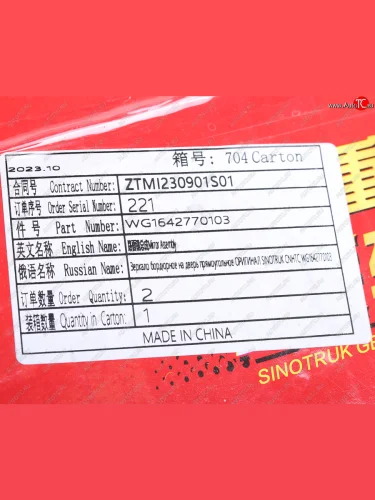 箱号: 704 Carton
2023.10
合同号 Contract Number: ZTMI230901S01
订单序号 Order Serial Number: 221
件 号 Part Number: WG1642770103
英文名称 English Name: Assembly
俄语名称 Russian Name: Зеркало бордюрное на дверь прямоугольное ОРИГИНАЛ SINOTRUK CNHTC WG1642770103
订单数量 Order Quantity: 2
装箱数量 Quantity in Carton: 1
MADE IN CHINA
SINOTRUK GE